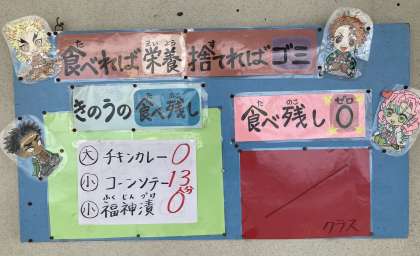 食べれば栄養捨てればゴミ
きのうの食べ残し
食べ残し0
大 チキンカレー 0
小 コーンソテー 13人分
小 福神漬 0
クラス